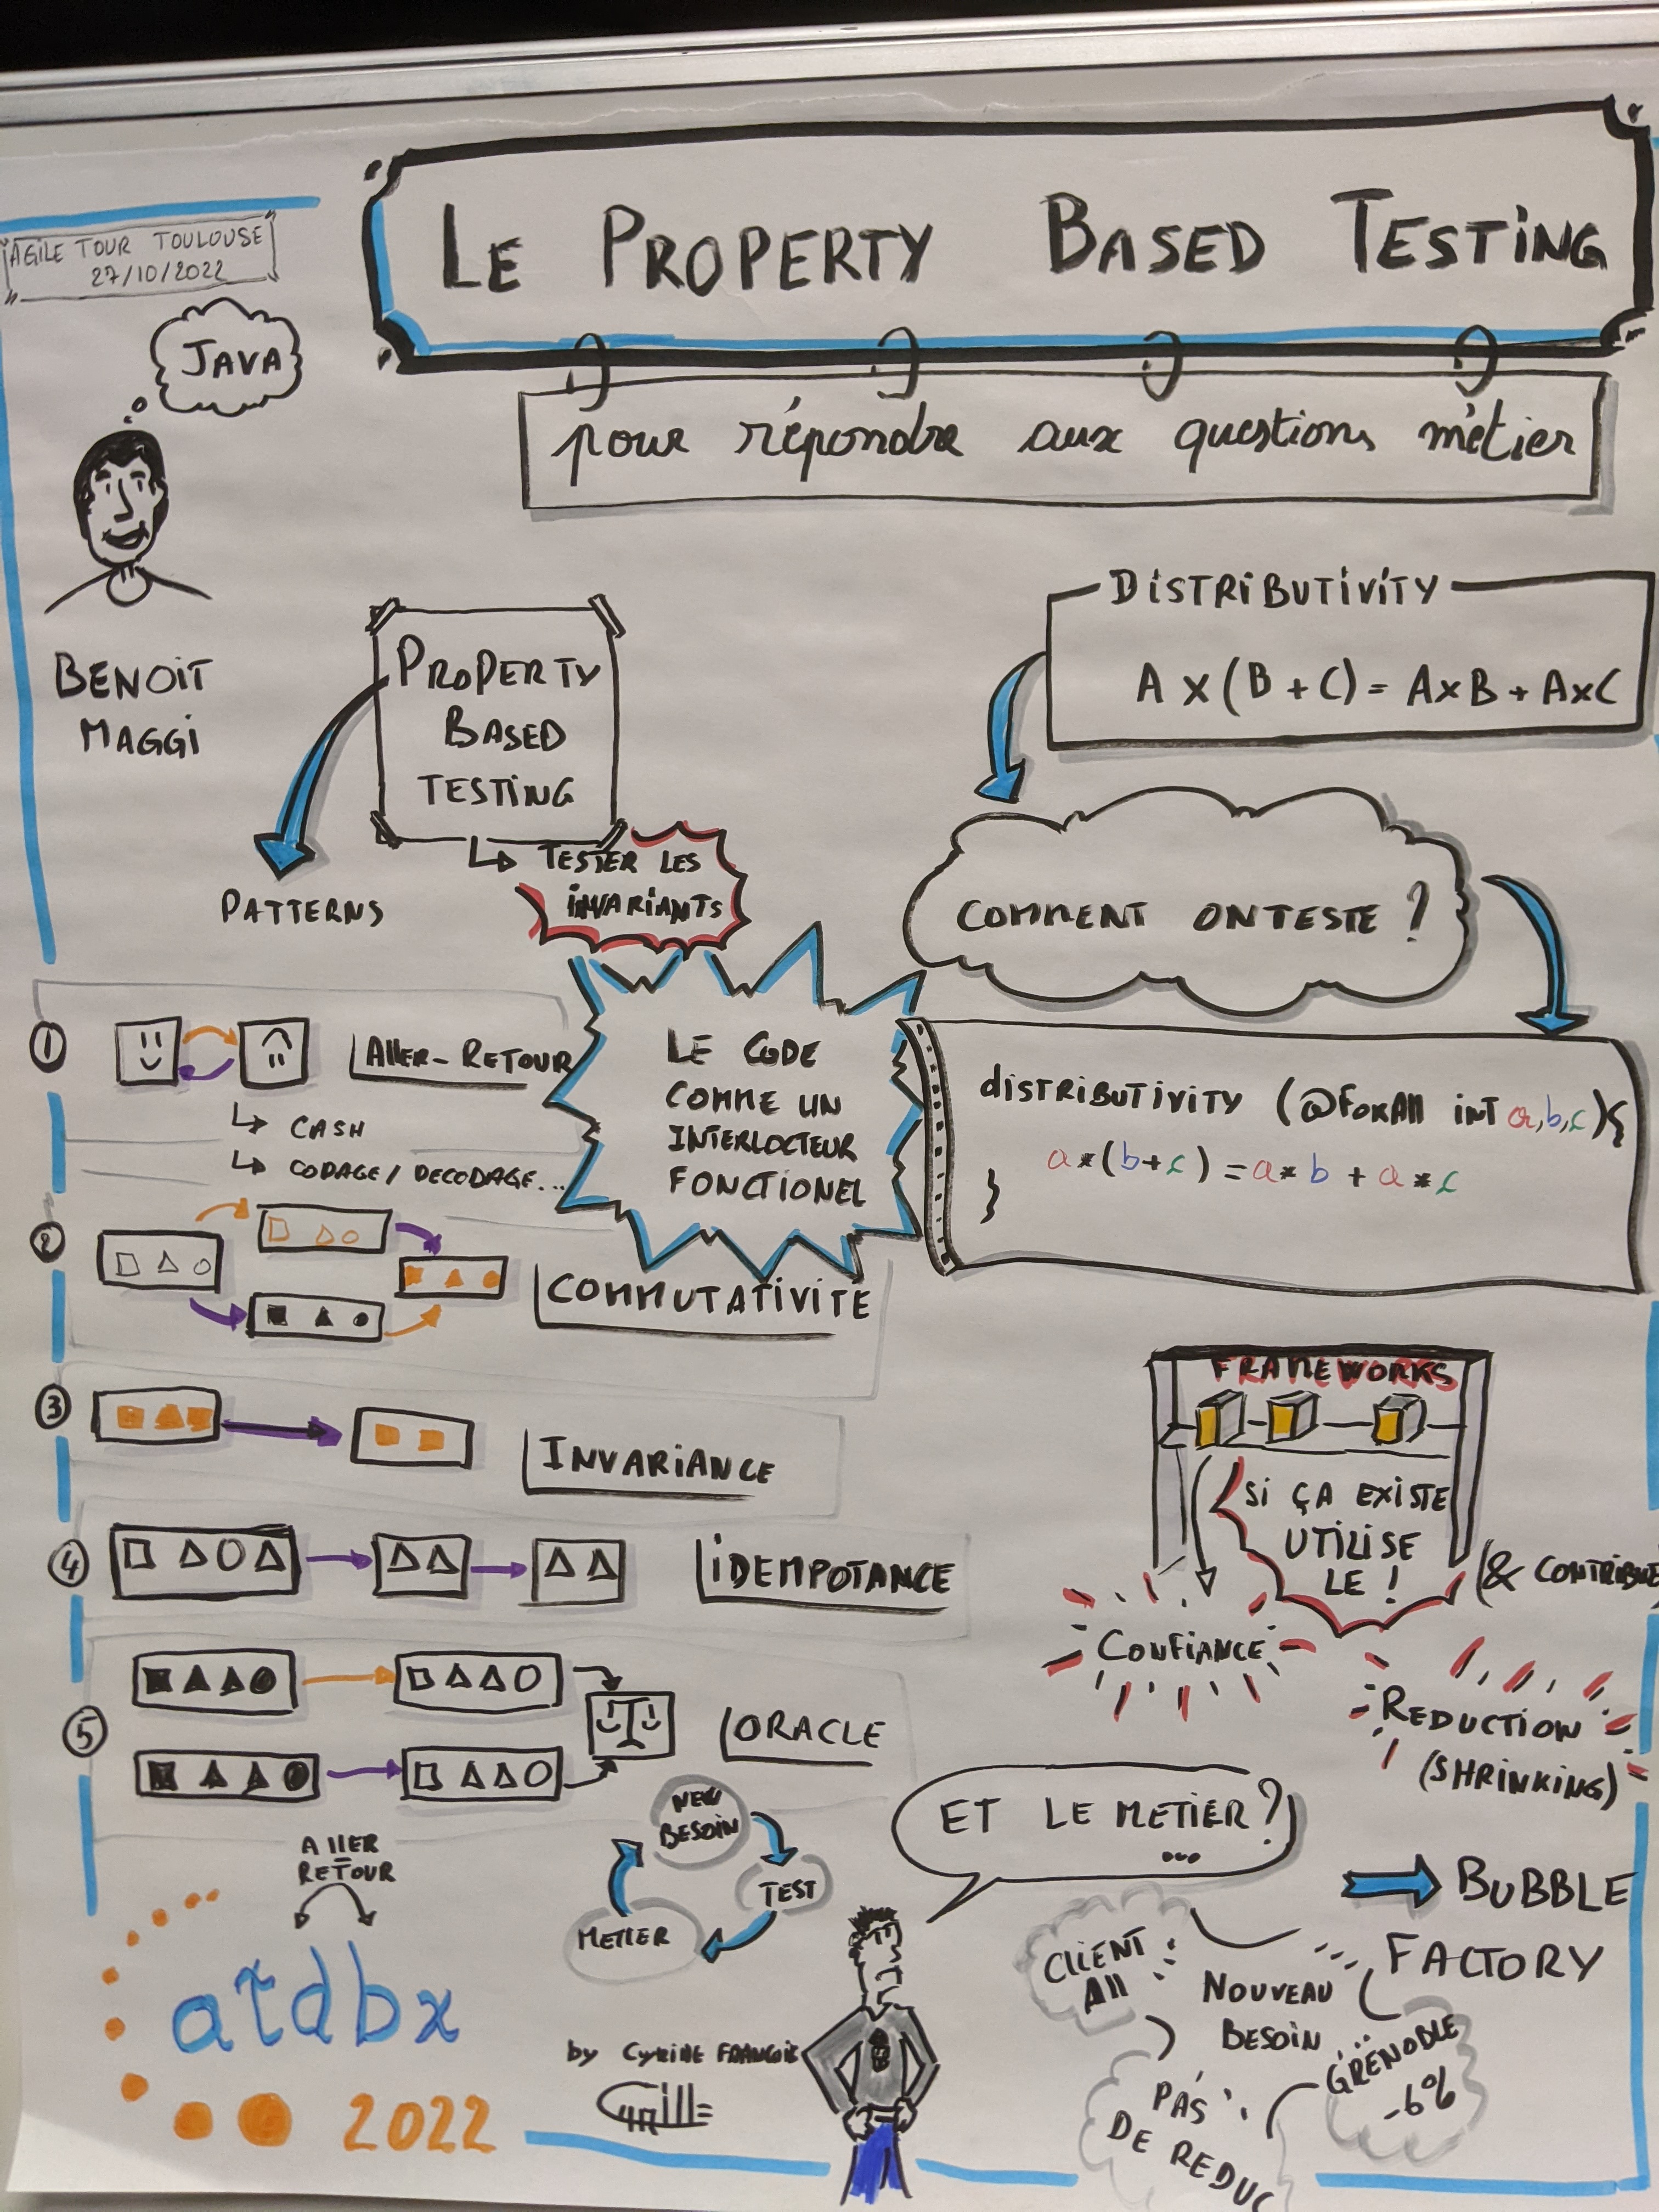 LE PROPERTY BASED TESTING
pour répondre aux questions métier
AGILE TOUR TOULOUSE
27/10/2022
JAVA
BENOIT
MAGGI
PROPERTY
BASED
TESTING
↳ TESTER LES
INVARIANTS
PATTERNS
DISTRIBUTIVITY
A x (B + C) = AxB + AxC
COMMENT ON TESTE ?
distRibutivity (@FORAll int a,b,c){
a*(b+c) = a*b + a*c
}
LE CODE
COMME UN
INTERLOCTEUR
FONCTIONEL
1
ALLER-RETOUR
↳ CASH
↳ CODAGE/DECODAGE...
2
COMMUTATIVITE
3
INVARIANCE
4
IDEMPOTANCE
5
ORACLE
FRAMEWORKS
SI ÇA EXISTE
UTILISE
LE !
(& CONTRIBUE)
CONFIANCE
REDUCTION
(SHRINKING)
ET LE METIER ?
...
NEW
BESOIN
TEST
METIER
BUBBLE
FACTORY
CLIENT
All
NOUVEAU
BESOIN
GRENOBLE
-6%
PAS
DE REDUC
ALLER
RETOUR
atdbx
2022
by Cyrille FRANCOIS